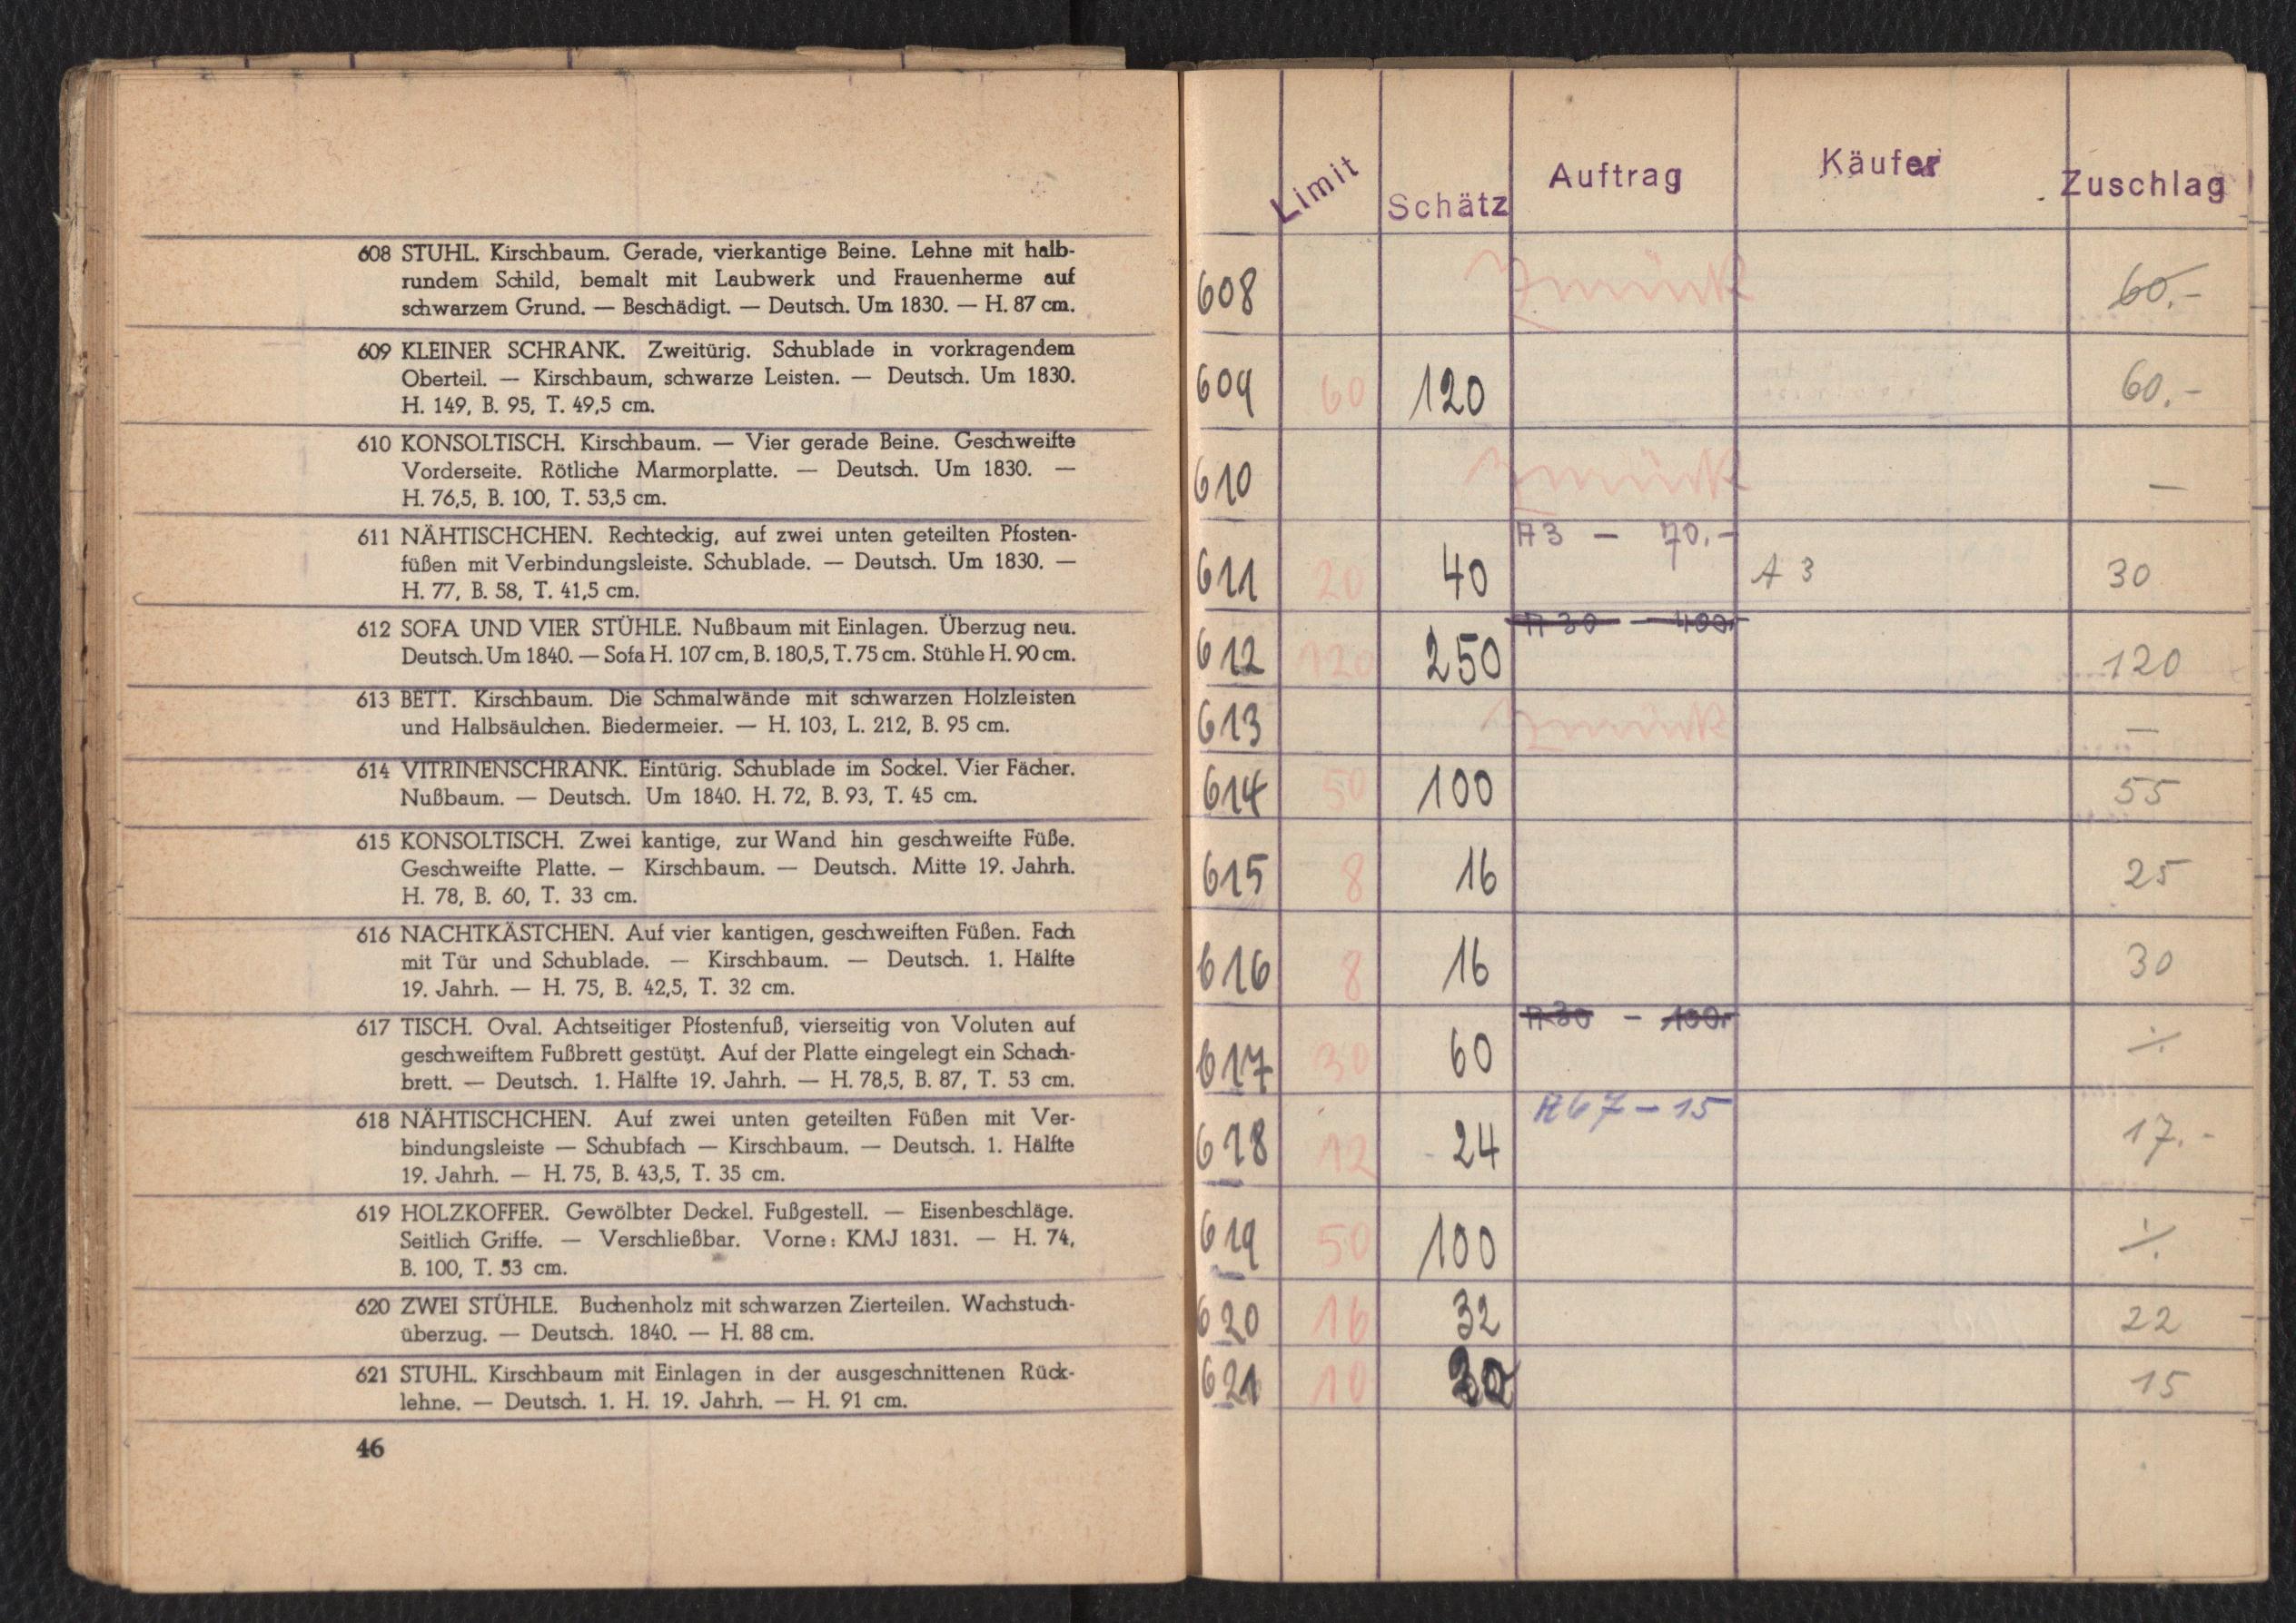 608 STUHL. Kirschbaum. Gerade, vierkantige Beine. Lehne mit halb-
rundem Schild, bemalt mit Laubwerk und Frauenherme auf
schwarzem Grund. — Beschädigt. — Deutsch. Um 1830. — H. 87 cm.
609 KLEINER SCHRANK. Zweitürig. Schublade in vorkragendem
Oberteil. — Kirschbaum, schwarze Leisten. — Deutsch. Um 1830.
H. 149, B. 95, T. 49,5 cm.
610 KONSOLTISCH. Kirschbaum. — Vier gerade Beine. Geschweifte
Vorderseite. Rötliche Marmorplatte. — Deutsch. Um 1830. —
H. 76,5, B. 100, T. 53,5 cm.
611 NÄHTISCHCHEN. Rechteckig, auf zwei unten geteilten Pfosten-
füßen mit Verbindungsleiste. Schublade. — Deutsch. Um 1830. —
H. 77, B. 58, T. 41,5 cm.
612 SOFA UND VIER STÜHLE. Nußbaum mit Einlagen. Überzug neu.
Deutsch. Um 1840. — Sofa H. 107 cm, B. 180,5, T. 75 cm. Stühle H. 90 cm.
613 BETT. Kirschbaum. Die Schmalwände mit schwarzen Holzleisten
und Halbsäulchen. Biedermeier. — H. 103, L. 212, B. 95 cm.
614 VITRINENSCHRANK. Eintürig. Schublade im Sockel. Vier Fächer.
Nußbaum. — Deutsch. Um 1840. H. 72, B. 93, T. 45 cm.
615 KONSOLTISCH. Zwei kantige, zur Wand hin geschweifte Füße.
Geschweifte Platte. — Kirschbaum. — Deutsch. Mitte 19. Jahrh.
H. 78, B. 60, T. 33 cm.
616 NACHTKÄSTCHEN. Auf vier kantigen, geschweiften Füßen. Fach
mit Tür und Schublade. — Kirschbaum. — Deutsch. 1. Hälfte
19. Jahrh. — H. 75, B. 42,5, T. 32 cm.
617 TISCH. Oval. Achtseitiger Pfostenfuß, vierseitig von Voluten auf
geschweiftem Fußbrett gestützt. Auf der Platte eingelegt ein Schach-
brett. — Deutsch. 1. Hälfte 19. Jahrh. — H. 78,5, B. 87, T. 53 cm.
618 NÄHTISCHCHEN. Auf zwei unten geteilten Füßen mit Ver-
bindungsleiste — Schubfach — Kirschbaum. — Deutsch. 1. Hälfte
19. Jahrh. — H. 75, B. 43,5, T. 35 cm.
619 HOLZKOFFER. Gewölbter Deckel. Fußgestell. — Eisenbeschläge.
Seitlich Griffe. — Verschließbar. Vorne: KMJ 1831. — H. 74,
B. 100, T. 53 cm.
620 ZWEI STÜHLE. Buchenholz mit schwarzen Zierteilen. Wachstuch-
überzug. — Deutsch. 1840. — H. 88 cm.
621 STUHL. Kirschbaum mit Einlagen in der ausgeschnittenen Rück-
lehne. — Deutsch. 1. H. 19. Jahrh. — H. 91 cm.
46
Limit Schätz Auftrag Käufer Zuschlag
608 Zurück 60.-
609 60 120 60.-
610 Zurück —
A3 — 70.-
611 20 40 A 3 30
A 30 — 400.-
612 120 250 120
613 Zurück —
614 50 100 55
615 8 16 25
616 8 16 30
A 30 - 100.-
617 30 60 ÷
A67 - 15
618 12 24 17.-
619 50 100 ÷
620 16 32 22
621 10 15